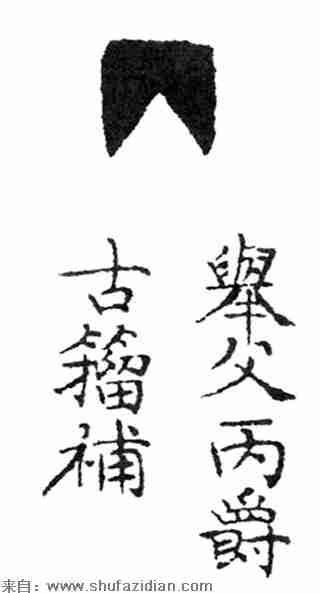 舉父丙爵
古籀補
来自：www.shufazidian.com